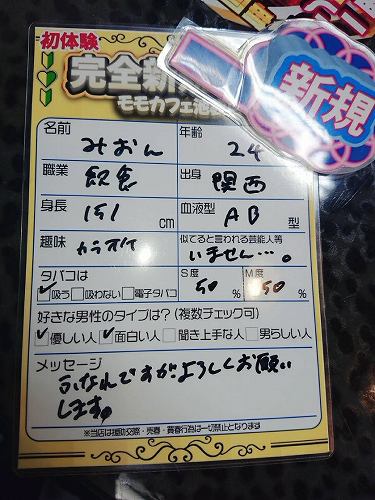 初体験
完全新
モモカフェ池
新規
名前 みおん 年齢 24
職業 飲食 出身 関西
身長 151 cm 血液型 AB 型
趣味 カラオケ 似てると言われる芸能人等 いません…。
タバコは S度 M度
吸う 吸わない 電子タバコ 50 % 50 %
好きな男性のタイプは？(複数チェック可)
優しい人 面白い人 聞き上手な人 男らしい人
メッセージ
なんですがよろしくお願い
します。
※当店は援助交際・売春・買春行為は一切禁止となります